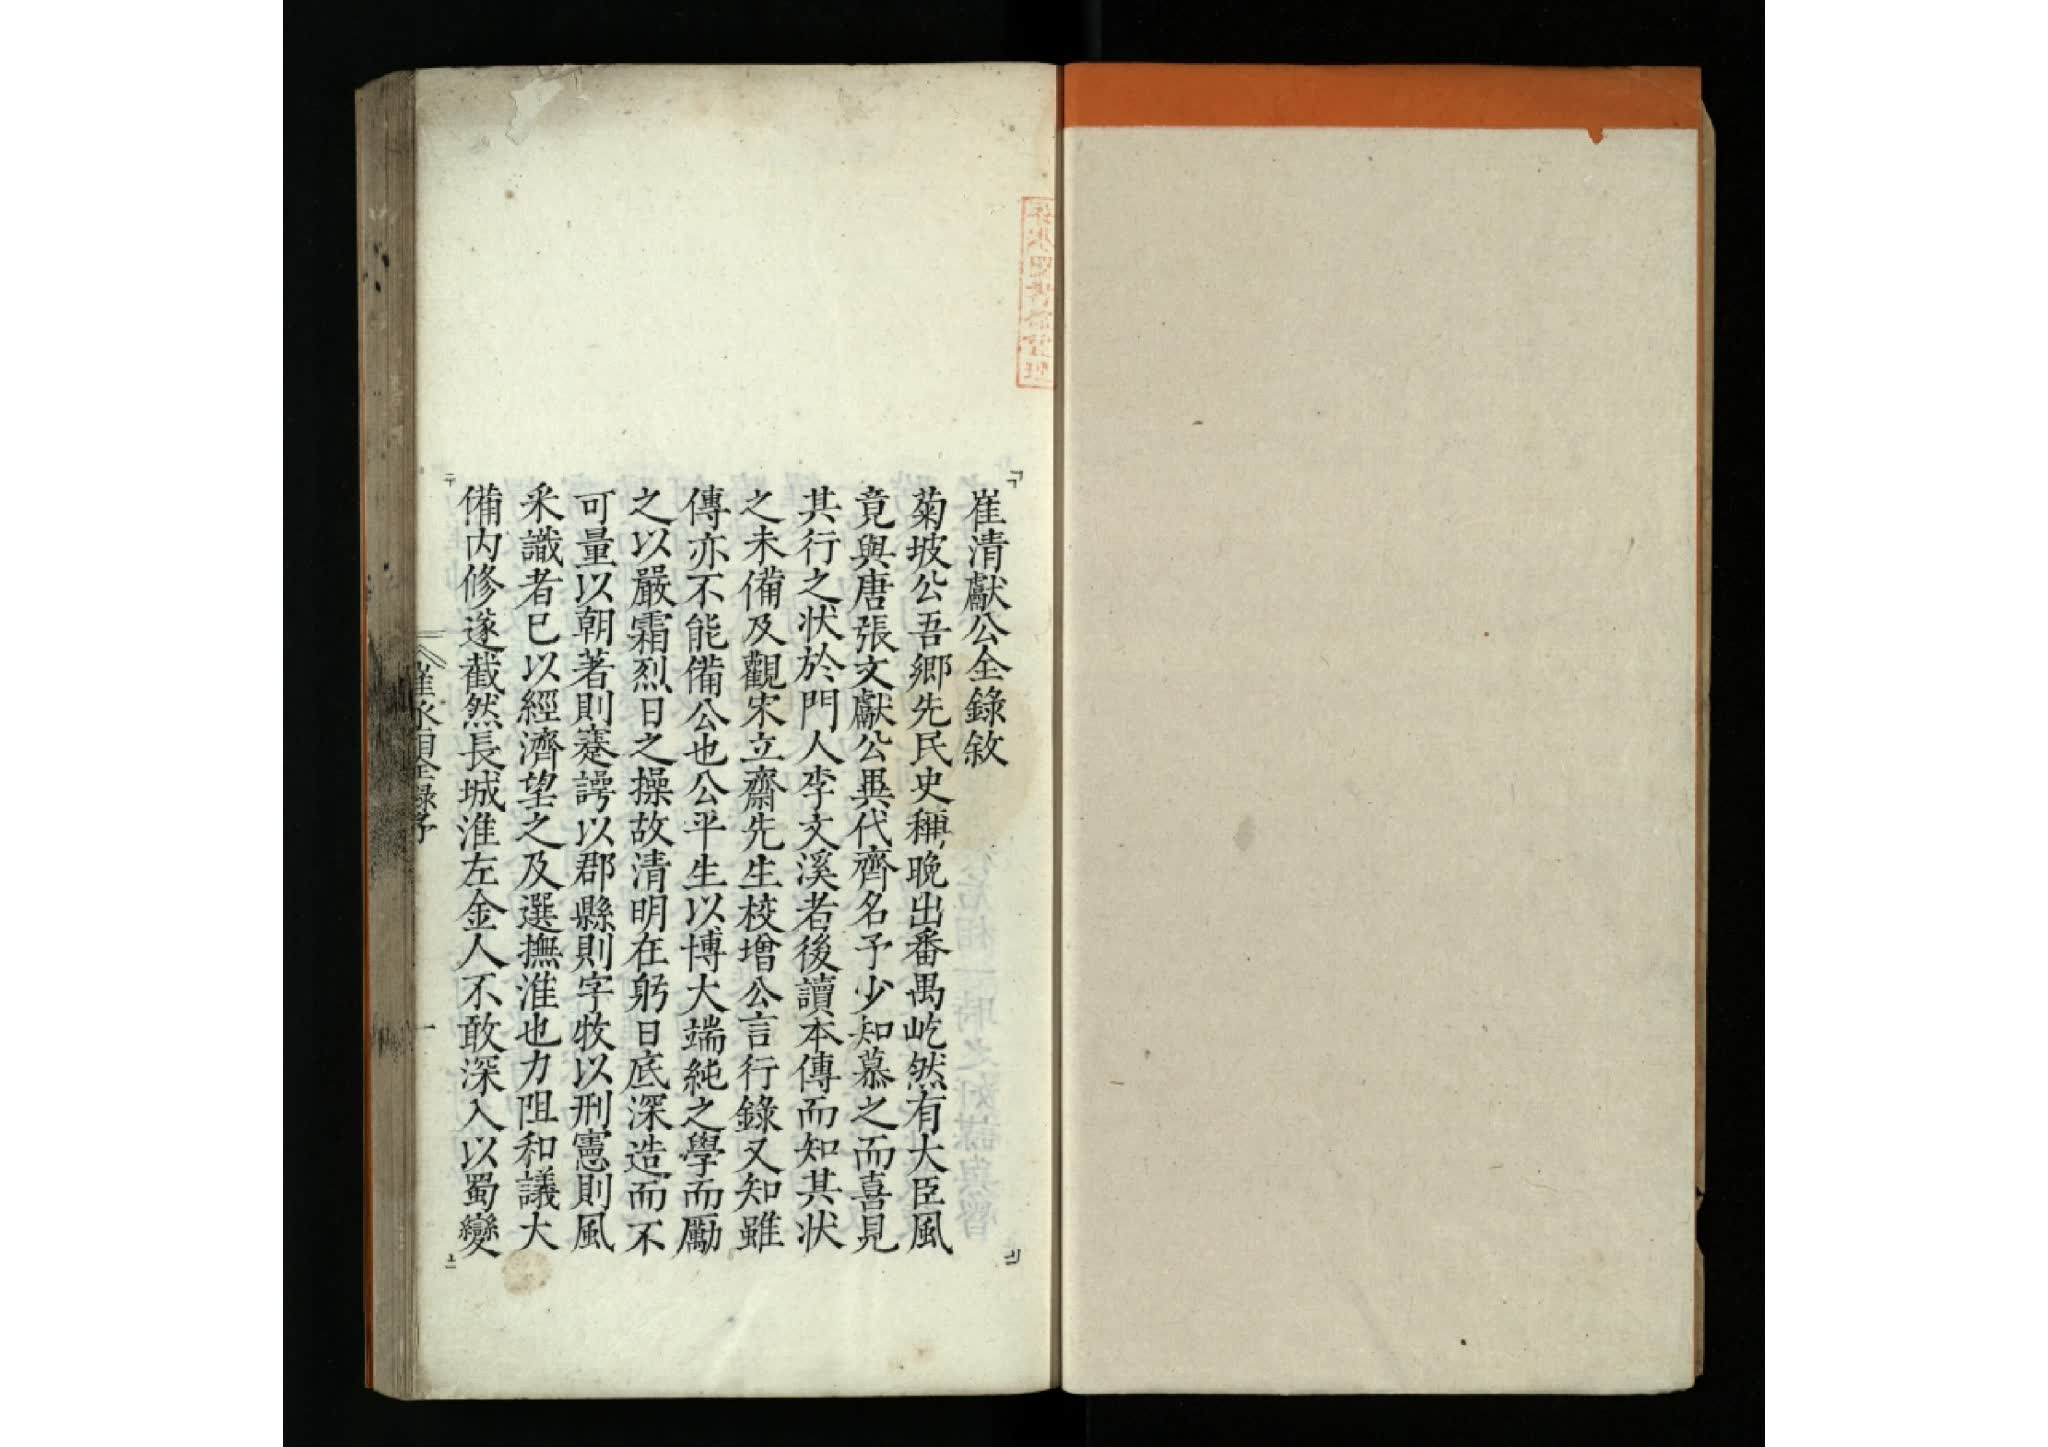 崔清獻公全錄敘
菊坡公吾鄉先民史稱晚出番禺屹然有大臣風
竟與唐張文獻公異代齊名予少知慕之而喜見
其行之状於門人李文溪者後讀本傳而知其状
之未備及觀宋立齋先生校增公言行錄又知雖
傳亦不能備公也公平生以博大端純之學而勵
之以嚴霜烈日之操故清明在躬日底深造而不
可量以朝著則蹇諤以郡縣則字牧以刑憲則風
采識者已以經濟望之及選撫淮也力阻和議大
備內修遂截然長城淮左金人不敢深入以蜀變
一